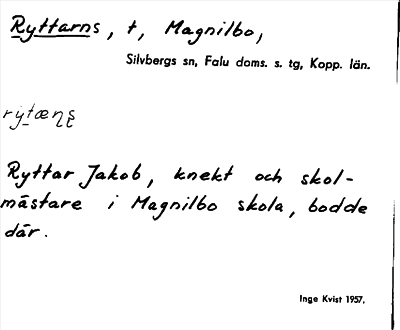 Ryttarns, t, Magnilbo,
Silvbergs sn, Falu doms. s. tg, Kopp. län.
rỳtæņş
Ryttar Jakob, knekt och skol-
mästare i Magnilbo skola, bodde
där.
Inge Kvist 1957.